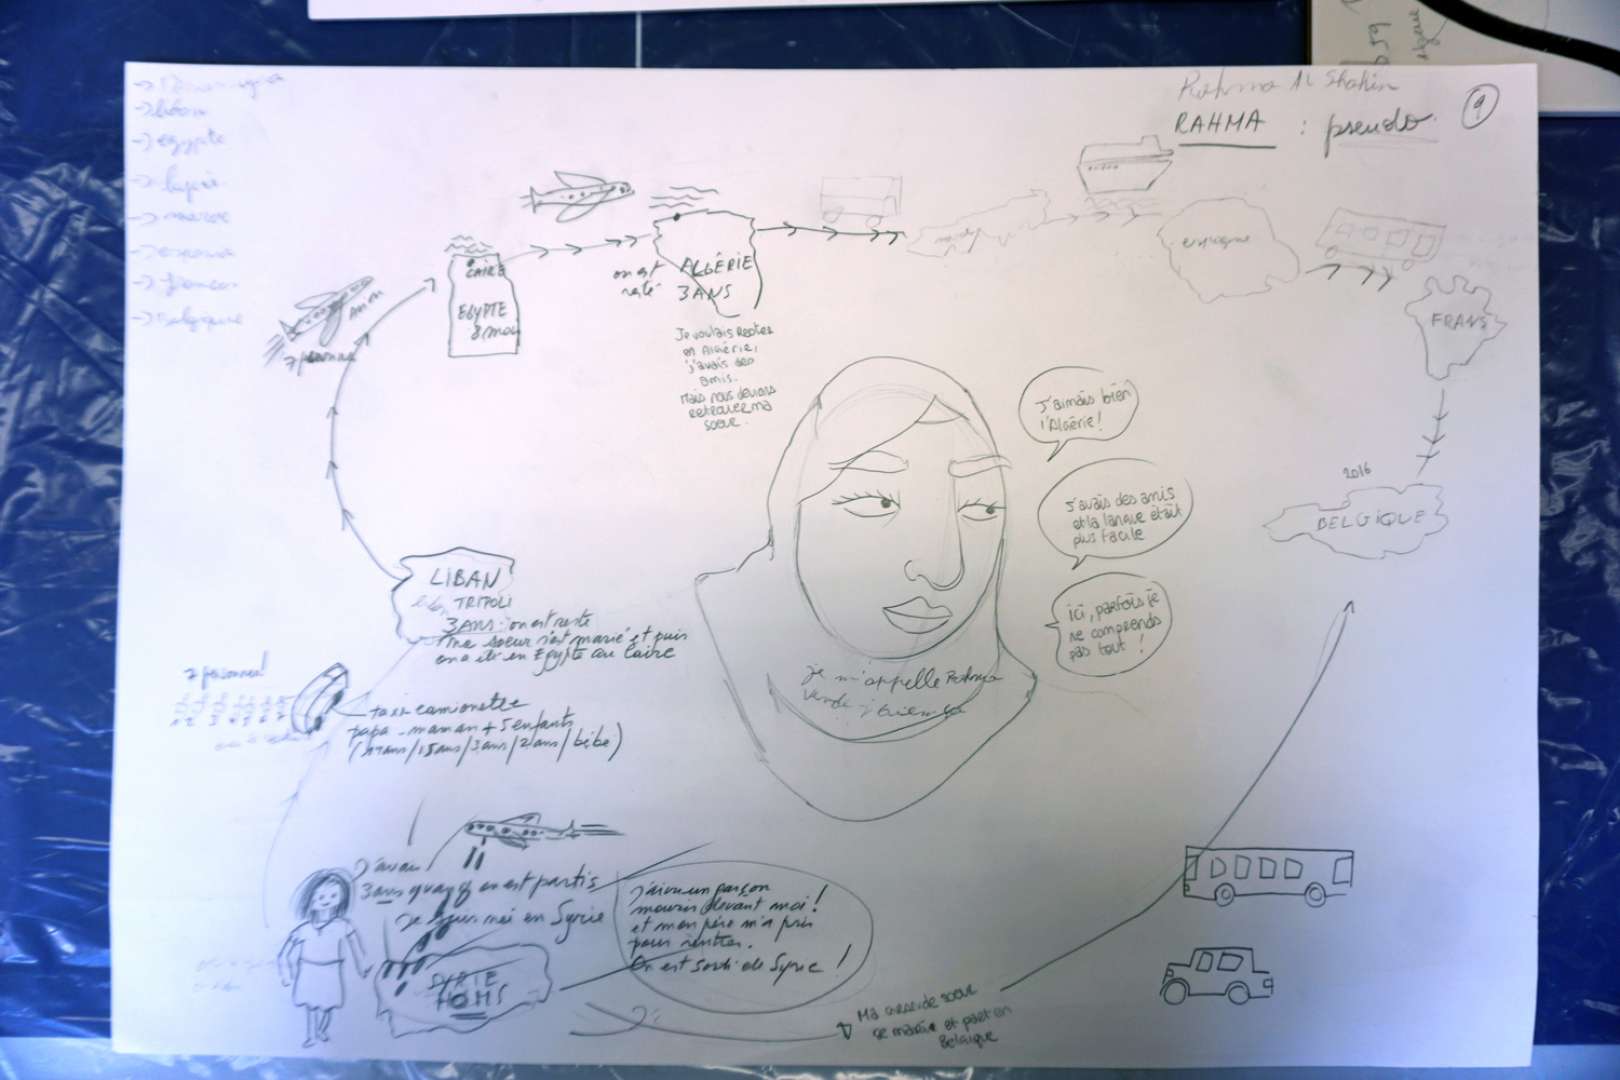 → liban
→ egypte
→ maroc
→ espana
→ francas
→ Belgique
Rahma Al Shahin
RAHMA : pseudo
9
CAIRE
EGYPTE
8 moi
Avion
7 personne
on est
resté
ALGÉRIE
3 ANS
Je voulais Rester
en Algérie,
j'avais des
amis.
Mais nous devions
retrouver ma
soeur.
espagne
FRANS
2016
BELGIQUE
J'aimais bien
l'Algérie!
J'avais des amis
et la langue était
plus facile
ici, parfois je
ne comprends
pas tout !
je m'appelle Rahma
LIBAN
TRIPOLI
3 ANS : on est resté
ma soeur s'est marié et puis
on a été en Egypte au Caire
7 personnes!
1 2 3 4 5 6 7
taxi camionette
papa - maman + 5 enfants
(17ans/15ans/3ans/2ans/bébé)
J'avai
3ans quand on est partis
Je suis né en Syrie
SYRIE
HOMS
J'ai vu un garçon
mourir devant moi!
et mon père m'a pris
pour rentrer.
On est sorti de Syrie !
Ma grande soeur
se marie et part en
Belgique